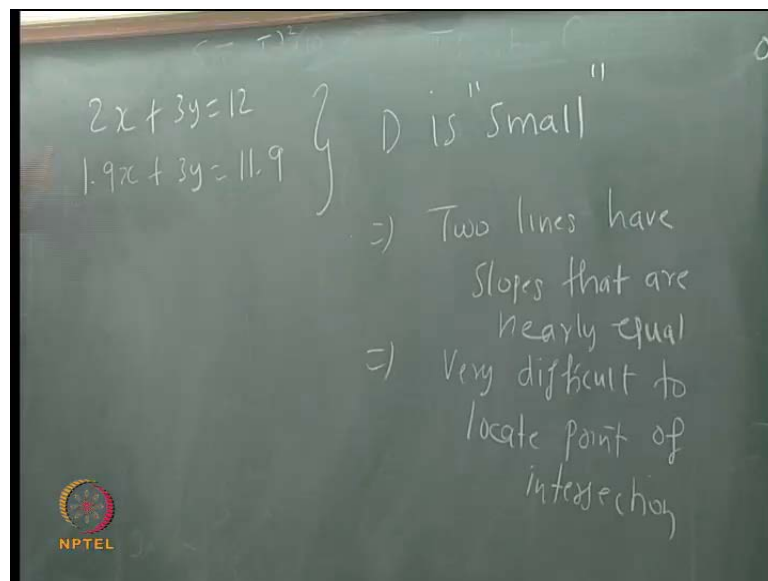 2x + 3y = 12
1.9x + 3y = 11.9
D is "Small"
=) Two lines have
slopes that are
nearly equal
=) Very difficult to
locate point of
intersection
NPTEL